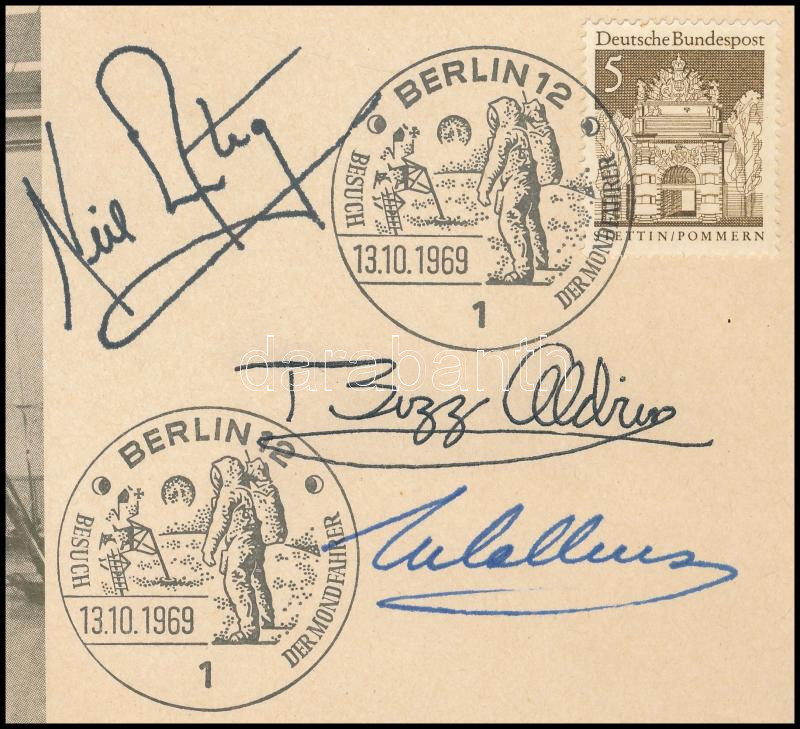 Deutsche Bundespost
5
ETTIN/POMMERN
BERLIN 12
BESUCH DER MONDFAHRER
13.10.1969
1
Neil
darabanth
T Buzz Aldrin
BERLIN 12
BESUCH DER MONDFAHRER
13.10.1969
1
MCollins